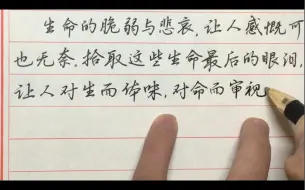 生命的脆弱与悲哀，让人感慨可
也无奈，拾取这些生命最后的眼泪，
让人对生而体味，对命而审视